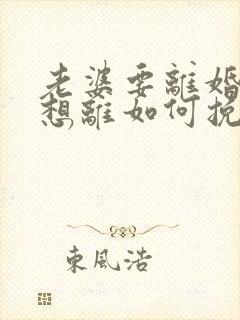 老婆要離婚
想離如何挽
東風浩